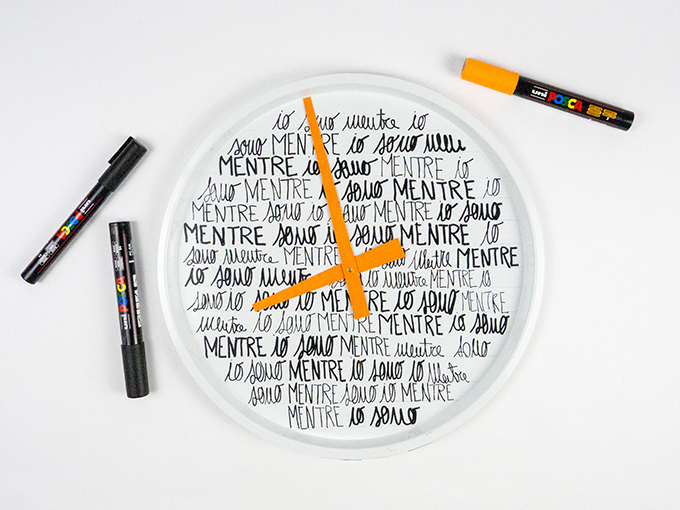 io sono mentre io
sono MENTRE io sono mentre
MENTRE io sono MENTRE io
sono MENTRE io sono MENTRE io
MENTRE sono io sono MENTRE io sono
MENTRE sono io sono MENTRE io
sono mentre MENTRE io sono mentre MENTRE
io sono mentre io sono MENTRE io
sono io sono io MENTRE io sono MENTRE
mentre io sono MENTRE MENTRE io sono
MENTRE io sono MENTRE mentre sono
io sono MENTRE io sono io mentre
sono MENTRE sono io MENTRE
MENTRE io sono
uni POSCA
POSCA
uni POSCA